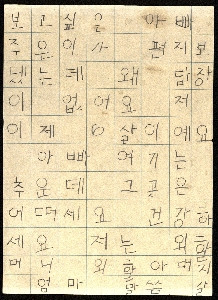 보고싶은 아빠
추운이가 편지보
냈는데 왜 답장
이 없어요 저
이제 6살이예요
아빠 여기는
추운데 그곳은
어떠세요 건강하
세요 저는 외할
머니 외할아버지
엄마 말씀 잘